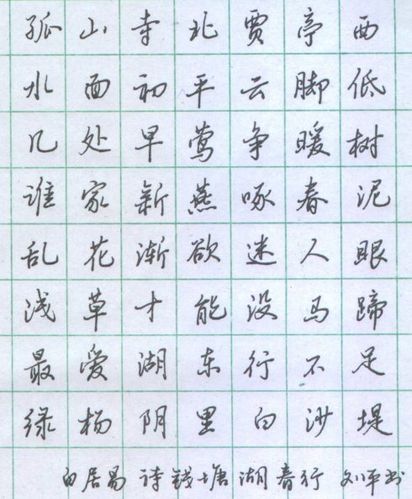 孤山寺北贾亭西
水面初平云脚低
几处早莺争暖树
谁家新燕啄春泥
乱花渐欲迷人眼
浅草才能没马蹄
最爱湖东行不足
绿杨阴里白沙堤
白居易 诗钱塘湖春行 刘平书